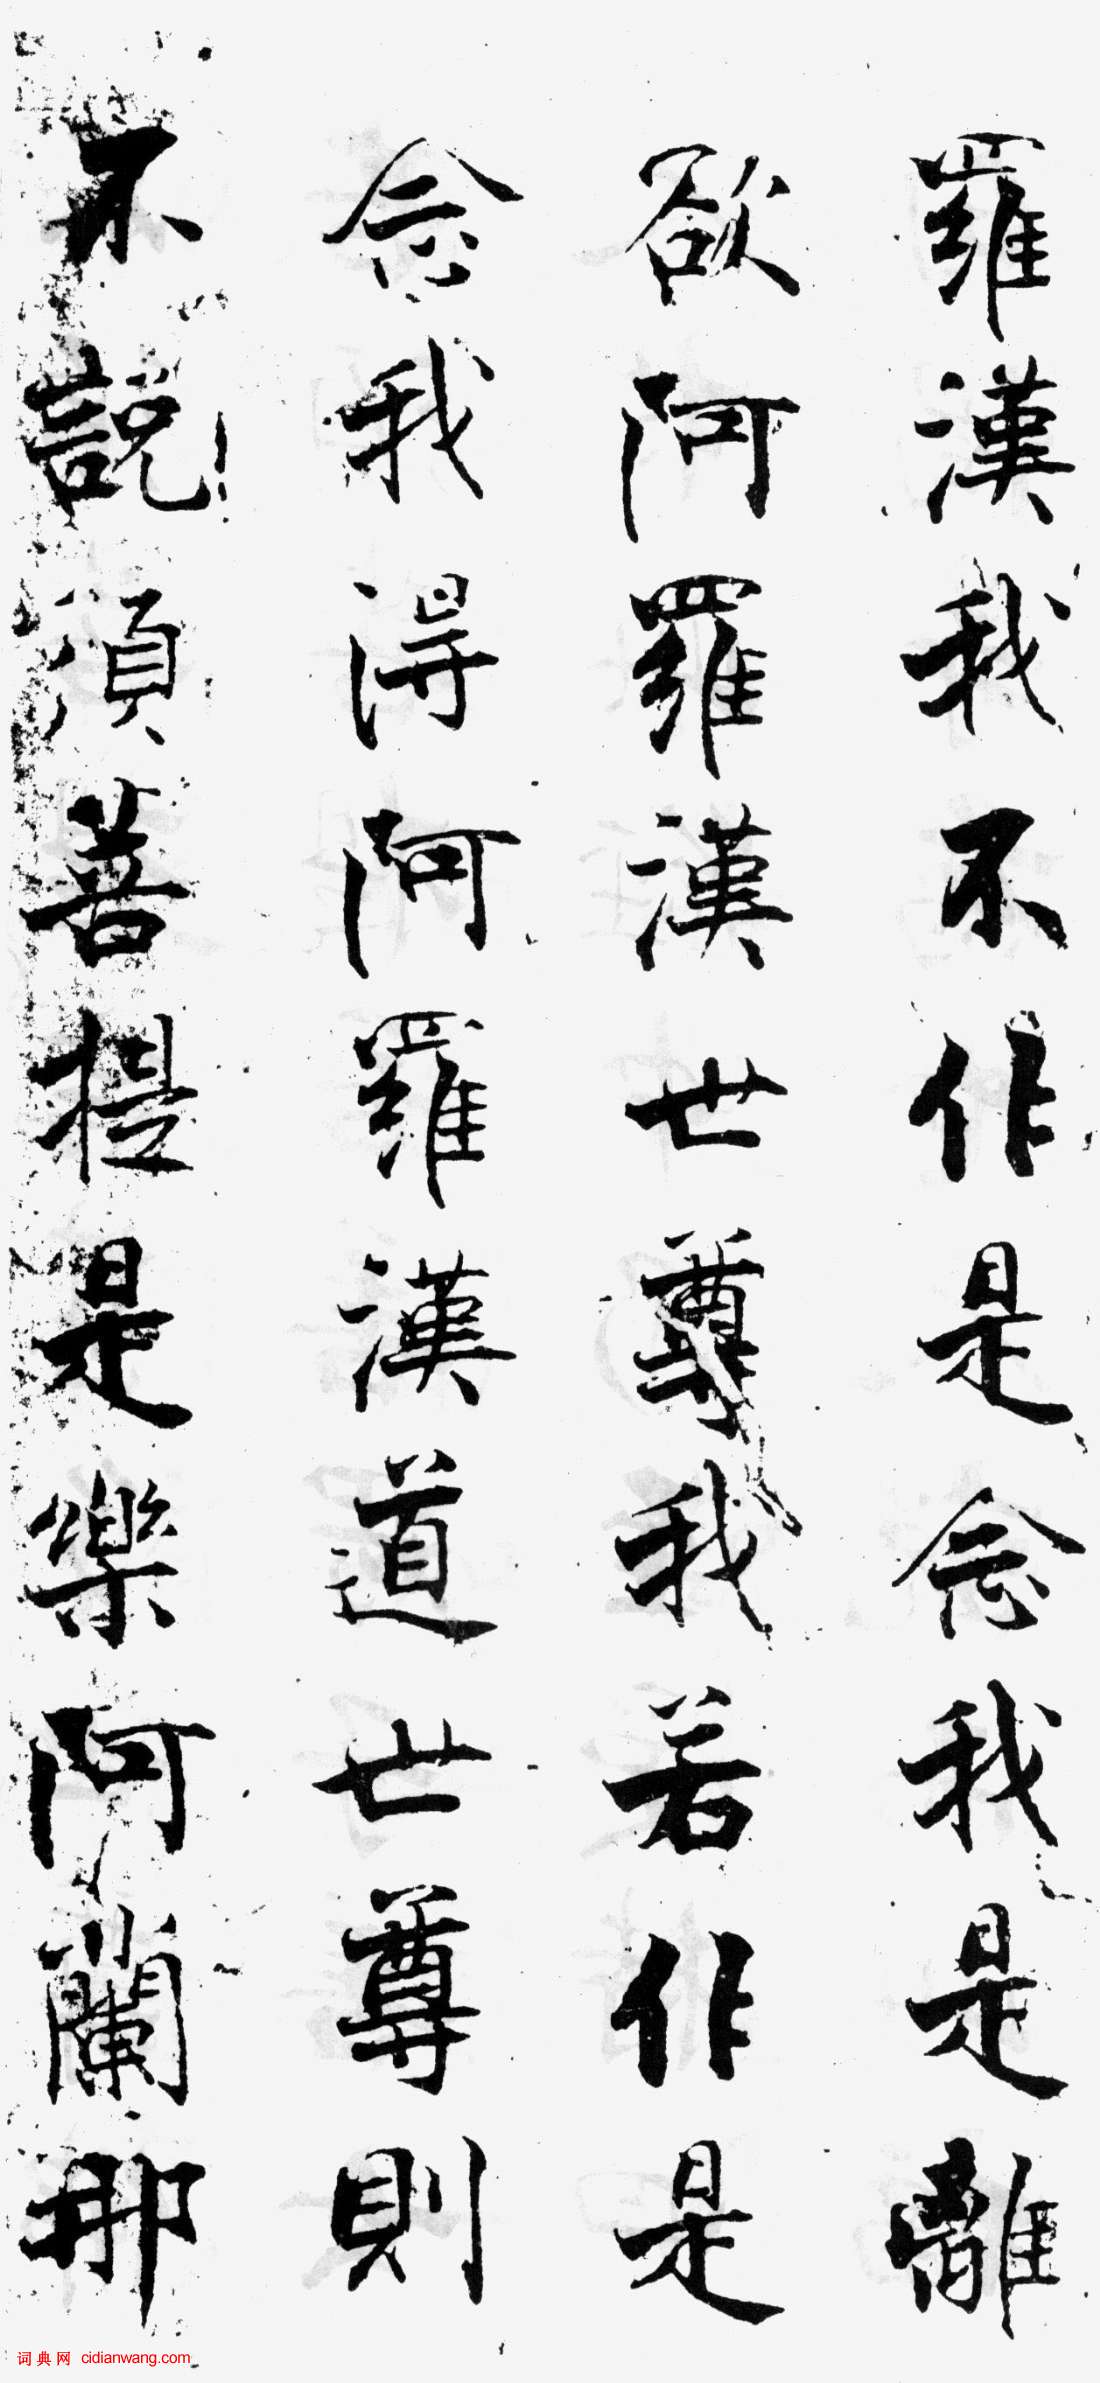 羅漢我不作是念我是離
欲阿羅漢世尊我若作是
念我得阿羅漢道世尊則
不説須菩提是樂阿蘭那
词典网 cidianwang.com